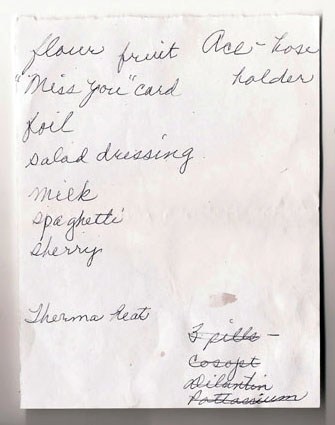 flour fruit Ace - hose
"Miss you" card holder
foil
salad dressing
milk
spaghetti
sherry
Therma heat
3 pills -
Cosopt
Dilantin
Pottassium